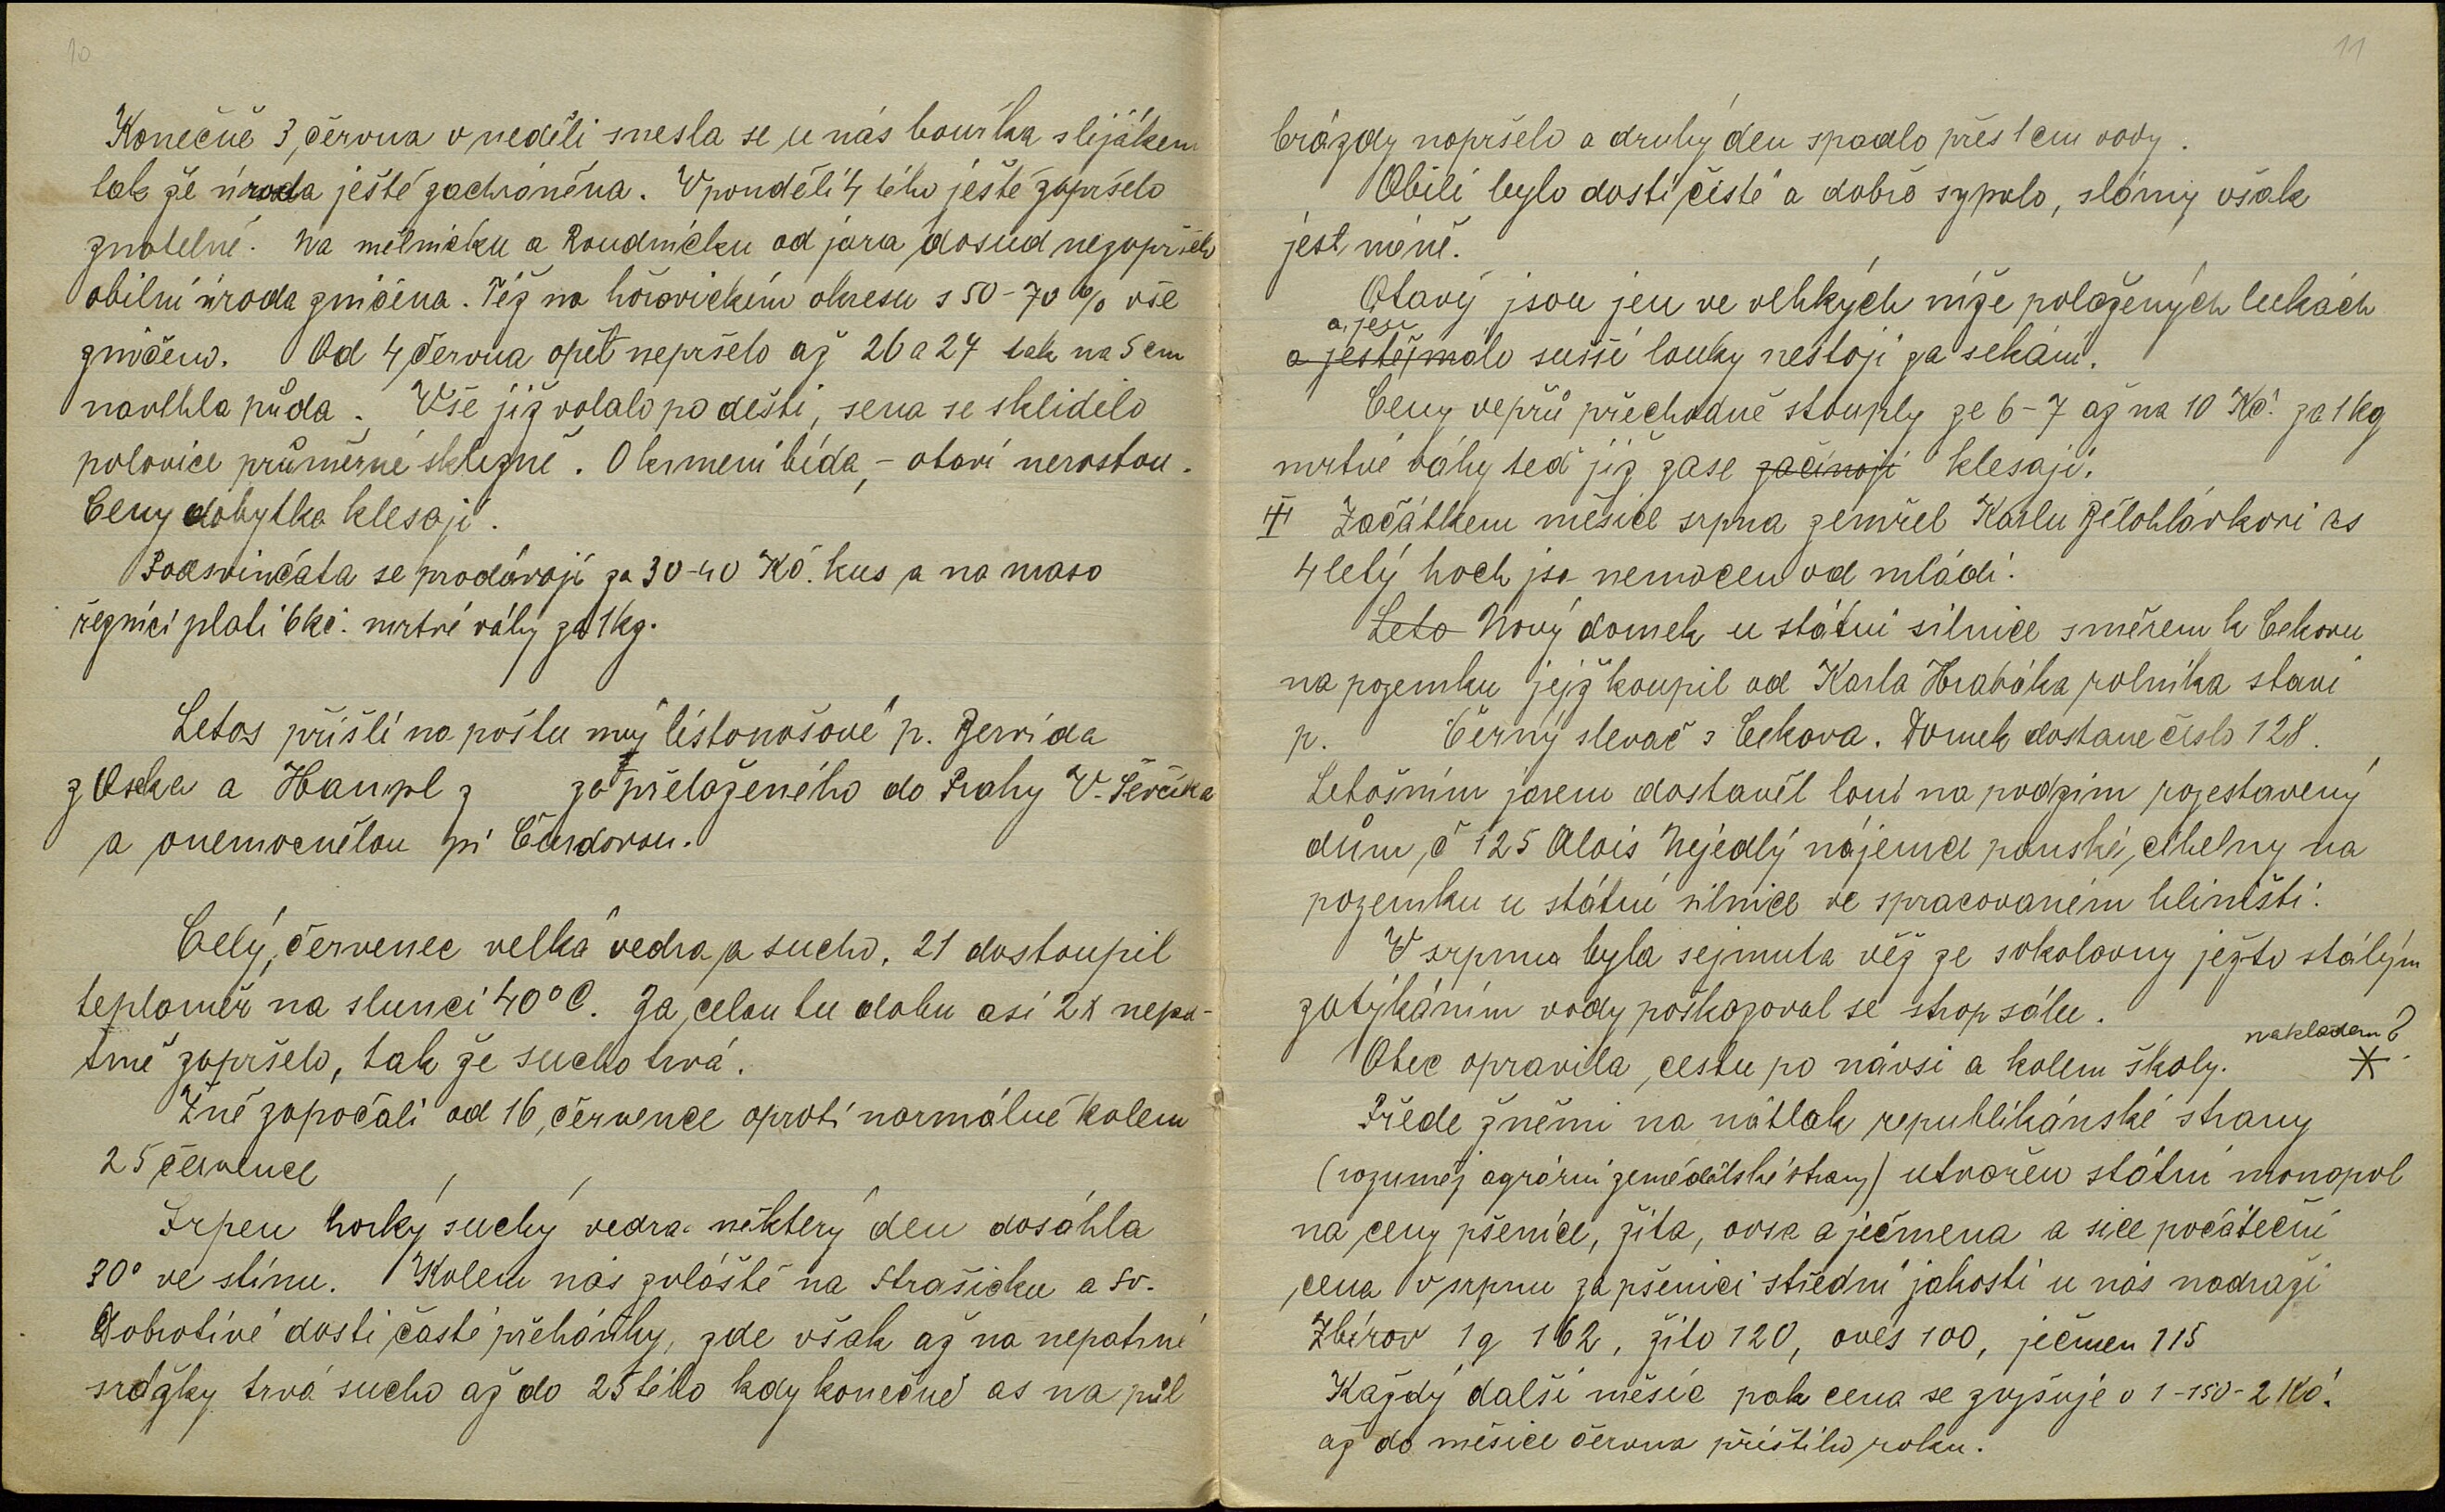 10
Konečně 3 června v neděli snesla se u nás bouřka s lijákem
tak že úroda ještě zachráněna. V pondělí 4 tého ještě zapršelo
znatelně. Na mělnicku a Roudnicku od jara dosud nezapršelo
obilní úroda zničena. Též na hořovickém okresu s 50-70 % vše
zničeno. Od 4 června opět nepršelo až 26 a 27 tak na 5 cm
navlhla půda. Vše již volalo po dešti, sena se sklidilo
polovice průměrné sklizně. O krmení bída, - otavi nerostou.
Ceny dobytka klesají.
Podsvinčata se prodávají za 30-40 Kč. kus a na maso
řezníci platí 6 kč. mrtvé váhy za 1 kg.
Letos přišli na poštu mý listonošové p. Bervida
z Oseka a Hampl z za přeloženého do Prahy V. Ševčíka
a onemocnělou pí Čandovou.
Celý, červenec velká vedra a sucho. 21 dostoupil
teploměr na slunci 40° C. Za celou tu dobu asi 2x nepa-
trně zapršelo, tak že sucho trvá.
Žně započali od 16 července oproti normálně kolem
25 července
Srpen horký suchý vedra některý den dosáhla
30° ve stínu. Kolem nás zvláště na Strašicku a sv.
Dobrotivé dosti časté přeháňky, zde však až na nepatrné
srážky trvá sucho až do 25 tého kdy konečně as na půl
11
brázdy napršelo a druhý den spadlo přes 1 cm vody.
Obilí bylo dosti čisté a dobře sypalo, slámy však
jest méně.
Otavy jsou jen ve vlhkých níže položených lukách
a jest
a ještě málo sušší louky nestojí za sekání.
Ceny vepřů přechodně stouply ze 6-7 až na 10 Kč. za 1 kg
mrtvé váhy teď již zase začínají klesají.
Začátkem měsíce srpna zemřel Karlu Bělohlávkovi as
4 letý hoch jsa nemocen od mládí.
Leto Nový domek u státní silnice směrem k Cekovu
na pozemku jejž koupil od Karla Hrabáka rolníka staví
p. Černý slevač z Cekova. Domek dostane číslo 128.
Letošním jarem dostavěl loni na podzim rozestavený
dům č 125 Alois Nejedlý nájemce panské, cihelny na
pozemku u státní silnice ve spracovaném hliništi.
V srpnu byla sejmuta věž ze sokolovny ježto stálým
zatýkáním vody poškozoval se strop sálu.
nakladem?
Obec opravila, cestu po návsi a kolem školy. *
Přede žněmi na nátlak republikánské strany
(rozuměj agrární zemědělské strany) utvořen státní monopol
na ceny pšenice, žita, ovsa a ječmena a sice počáteční
cena v srpnu za pšenici střední jakosti u nás nádraží
Zbirov 1 q 162, žito 120, oves 100, ječmen 115
Každý další měsíc pak cena se zvyšuje o 1-150-2 Kč.
až do měsíce června příštího roku.